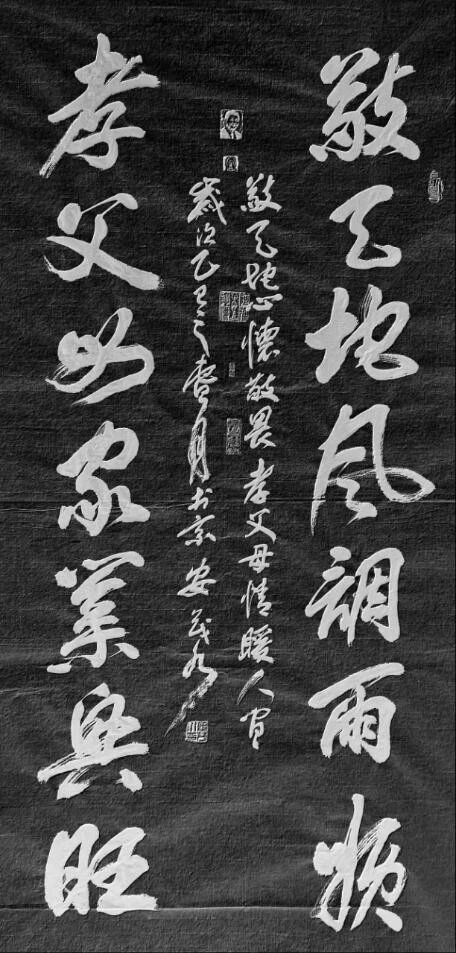 敬天地风調雨顺
敬天地心懷敬畏孝父母情暖人间
歲次乙巳之壹月书京安
孝父母家業興旺